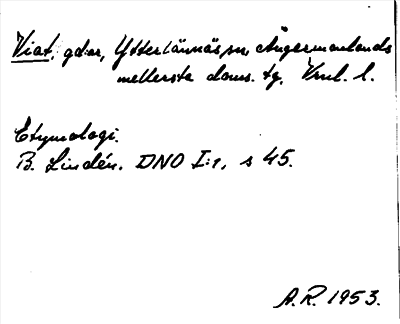 Viat, gd:ar, Ytterlännäs sn, Ångermanlands
mellersta doms. tg, Vnl. l.
Etymologi.
B. Lindén. DNO I:1, s 45.
A.R. 1953.